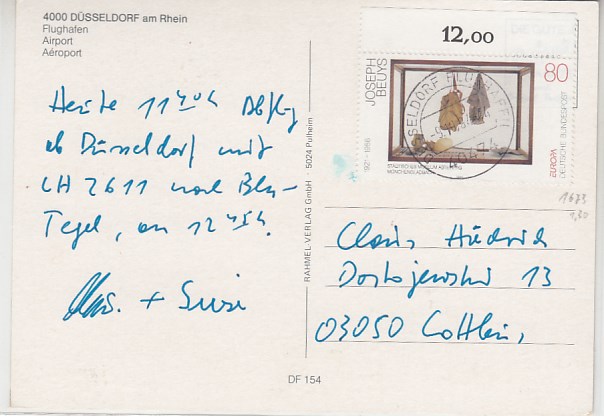 4000 DÜSSELDORF am Rhein
Flughafen
Airport
Aéroport
Heute 11 40h Abflug
ab Düsseldorf mit
LH 2611 nach Bln-
Tegel, an 12 45h.
+ Susi
RAHMEL-VERLAG GmbH · 5024 Pulheim
DF 154
12,00
JOSEPH
BEUYS
1921-1986
80
STÄDTISCHES MUSEUM ABTEIBERG
MÖNCHENGLADBACH
EUROPA
DEUTSCHE BUNDESPOST
DÜSSELDORF FLUGHAFEN
40474
1673
1,30
Claus
Dostojewski 13
03050 Cottbus,